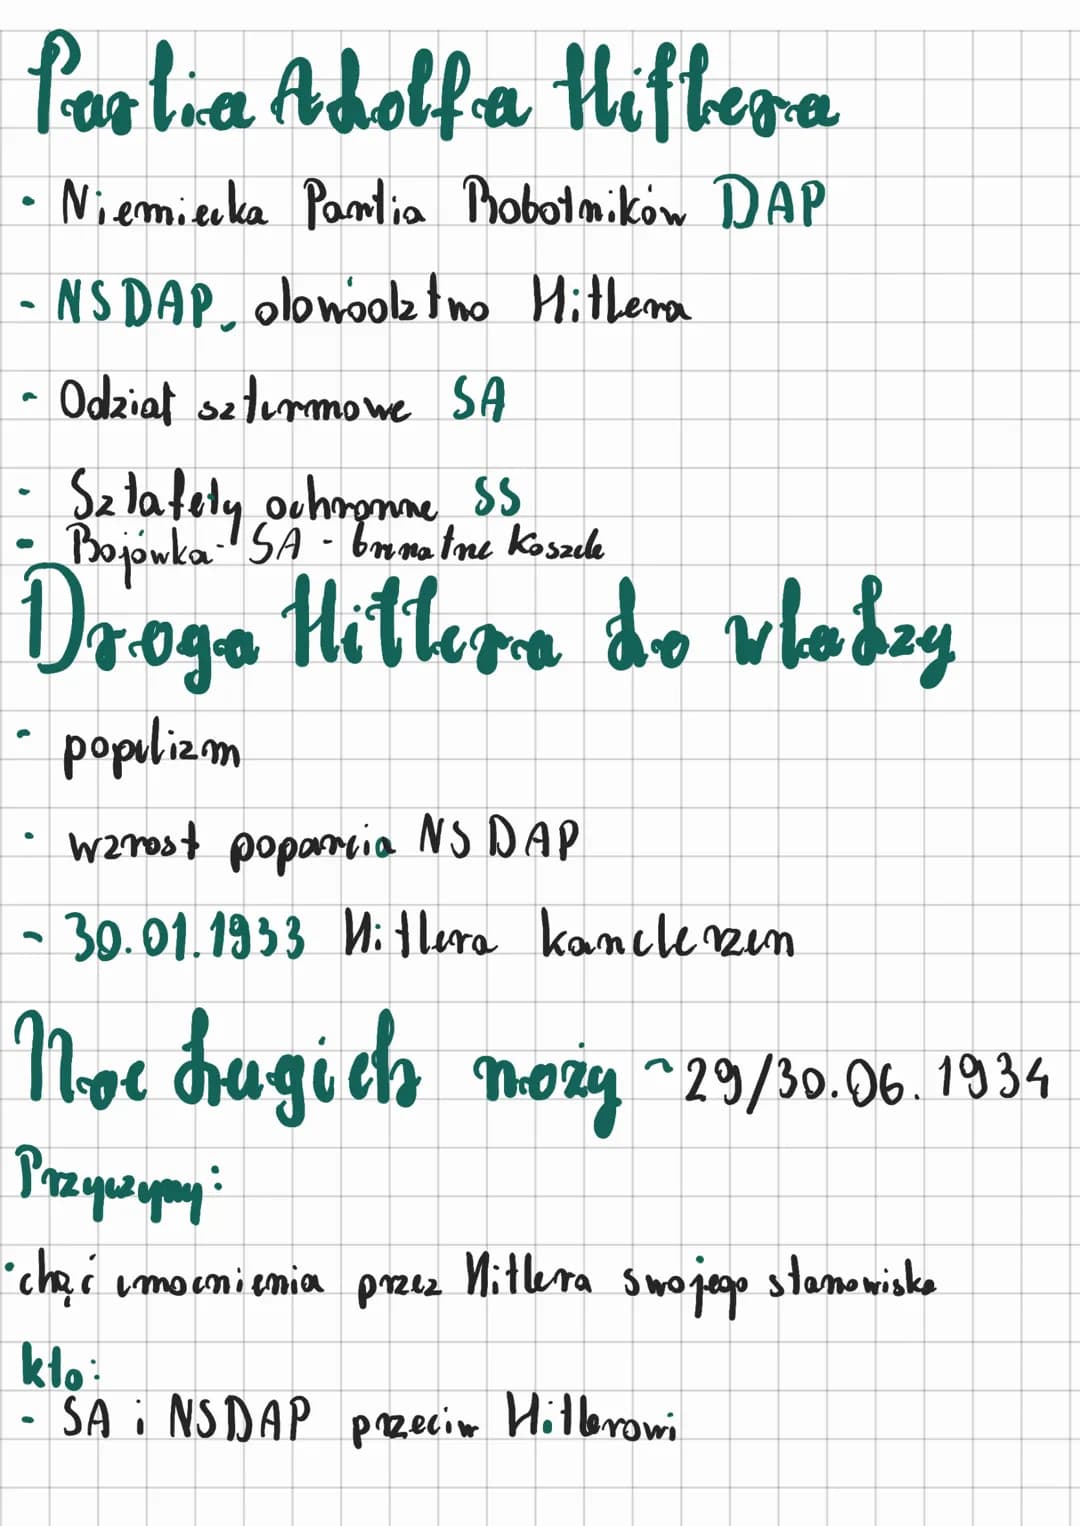 Partia Adolfa Hitlera
- Niemiecka Partia Robotników DAP
- NSDAP, dowództwo Hitlera
- Odział szturmowe SA
- Sztafety ochronne SS
- Bojówka - SA - brunatne koszule
Droga Hitlera do władzy
- populizm
- wzrost poparcia NSDAP
- 30.01.1933 Hitlera kanclerzem
Noc długich noży - 29/30.06.1934
Przyczyny:
- chęć umocnienia przez Hitlera swojego stanowiska
kto:
- SA i NSDAP przeciw Hitlerowi